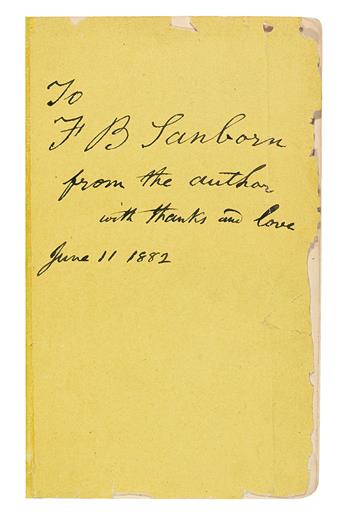 To
F B Sanborn
from the author
with thanks and love
June 11 1882